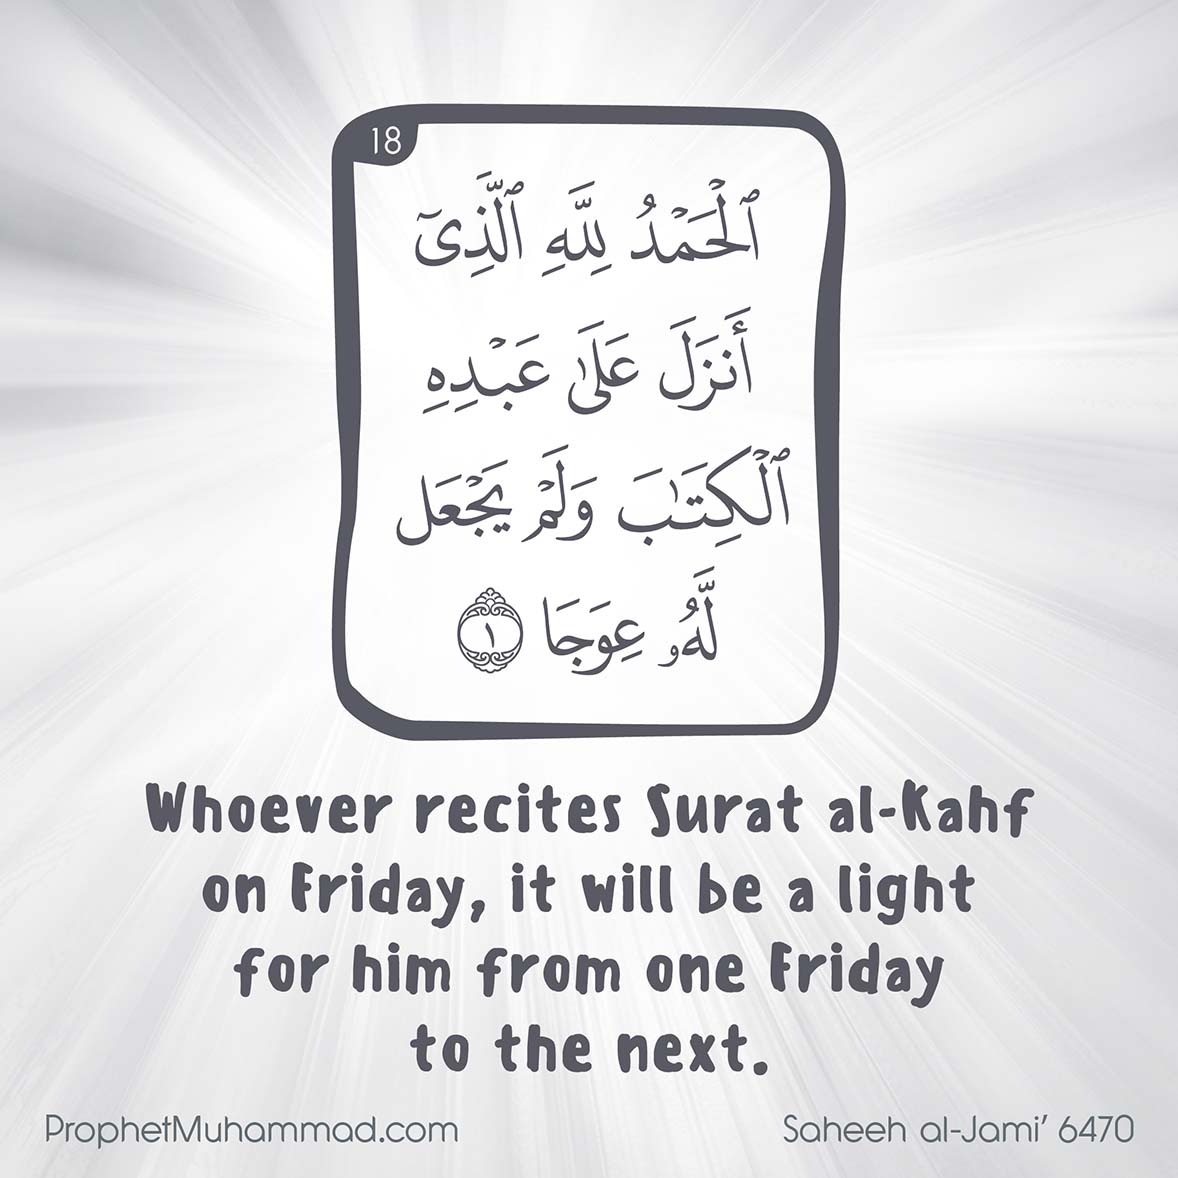 18
ٱلْحَمْدُ لِلَّهِ ٱلَّذِىٓ
أَنزَلَ عَلَىٰ عَبْدِهِ
ٱلْكِتَـٰبَ وَلَمْ يَجْعَل
لَّهُۥ عِوَجَا ١
Whoever recites Surat al-Kahf
on Friday, it will be a light
for him from one Friday
to the next.
ProphetMuhammad.com
Saheeh al-Jami' 6470